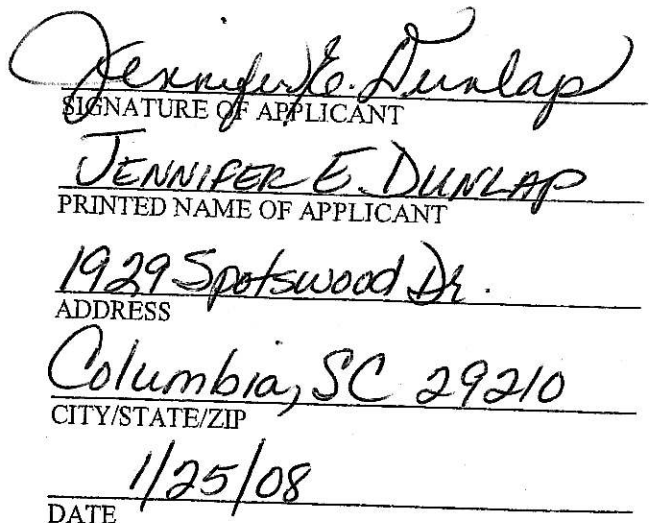 Jennifer E. Dunlap
SIGNATURE OF APPLICANT
JENNIFER E. DUNLAP
PRINTED NAME OF APPLICANT
1929 Spotswood Dr.
ADDRESS
Columbia, SC 29210
CITY/STATE/ZIP
1/25/08
DATE